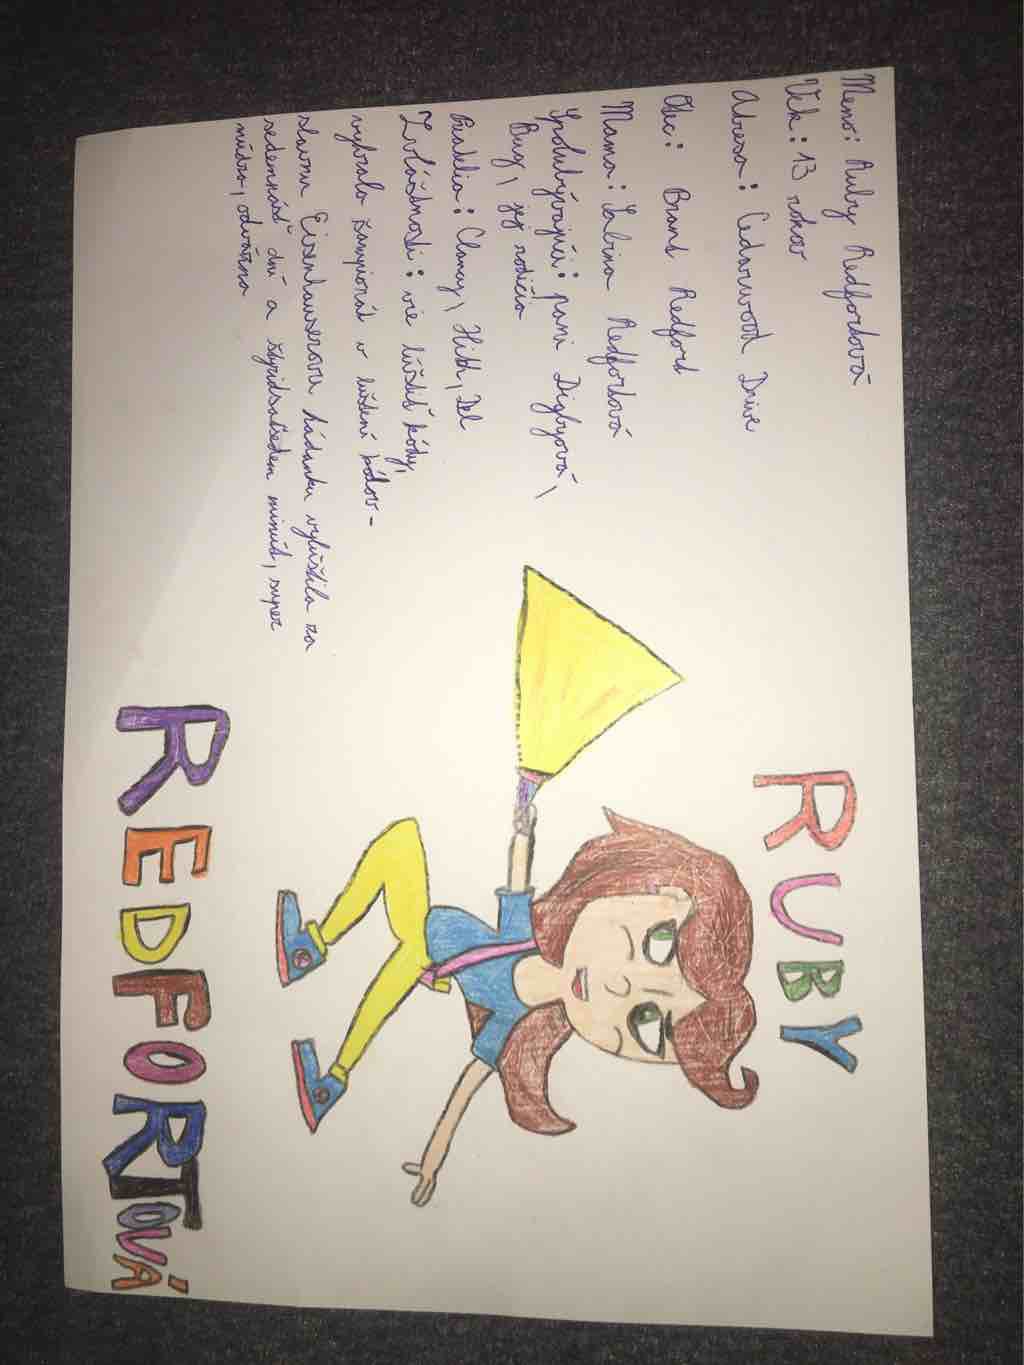 Meno: Ruby Redfordová
Vek: 13 rokov
Adresa: Cedarwood Drive
Otec: Brant Redford
Mama: Sabina Redfordová
Spolubývajúci: pani Digbyová,
Bug, jej rodičia
Priatelia: Clancy, Hitch, Del
Zvláštnosti: vie lúštiť kódy,
vyhrala šampionát v lúštení kódov -
slávnu Eisenhauserovu hádanku vylúštila za
sedemnásť dní a štyridsaťsedem minút, super
múdra, odvážna
RUBY
REDFORTOVÁ